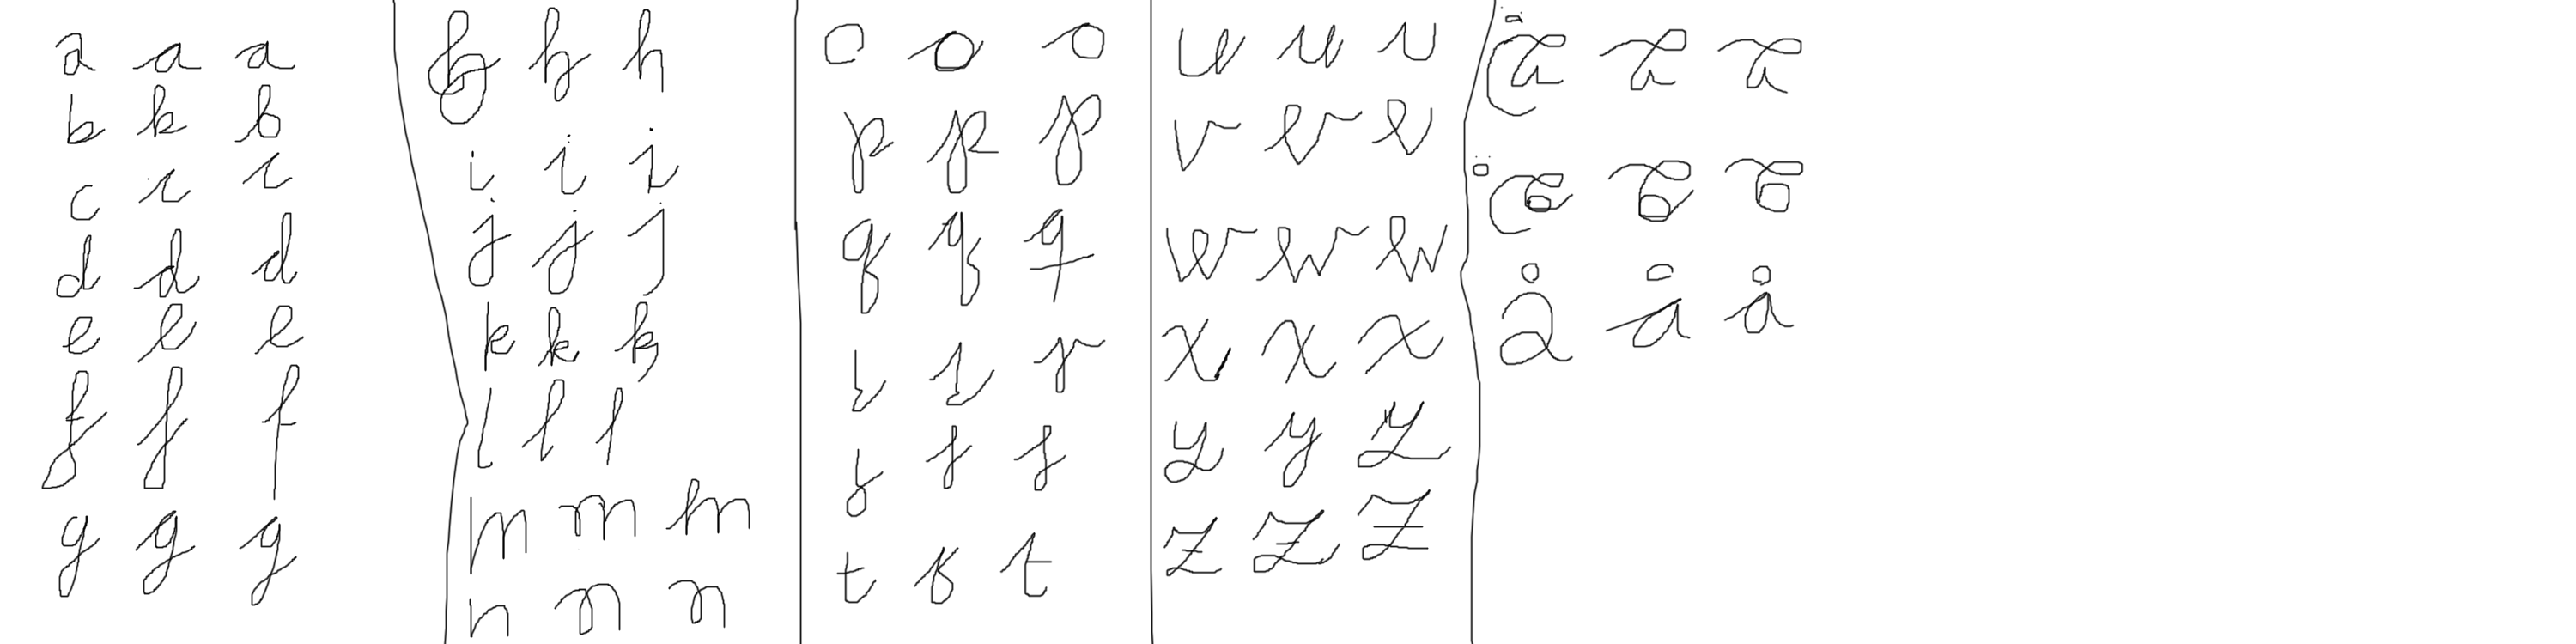 a a a
b b b
c c c
d d d
e e e
f f f
g g g
h h h
i i i
j j j
k k k
l l l
m m m
n n n
o o o
p p p
q q q
r r r
s s s
t t t
u u u
v v v
w w w
x x x
y y y
z z z
ä
ö
å å å